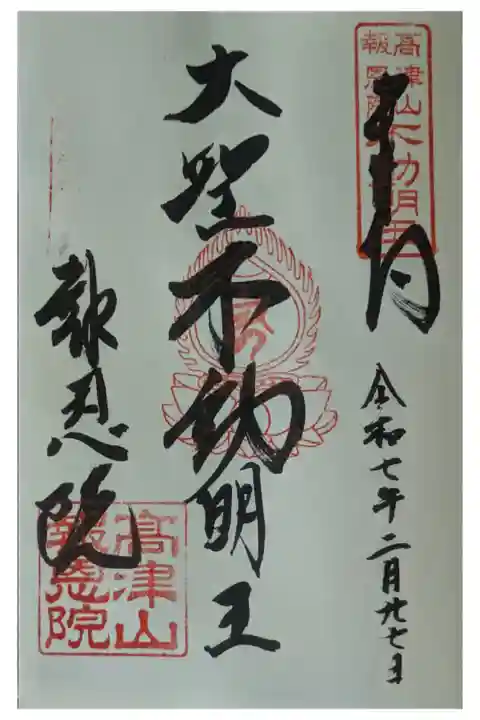 高津山不動明王
報恩院
令和七年二月廿七日
大聖不動明王
報恩院
高津山
報恩院